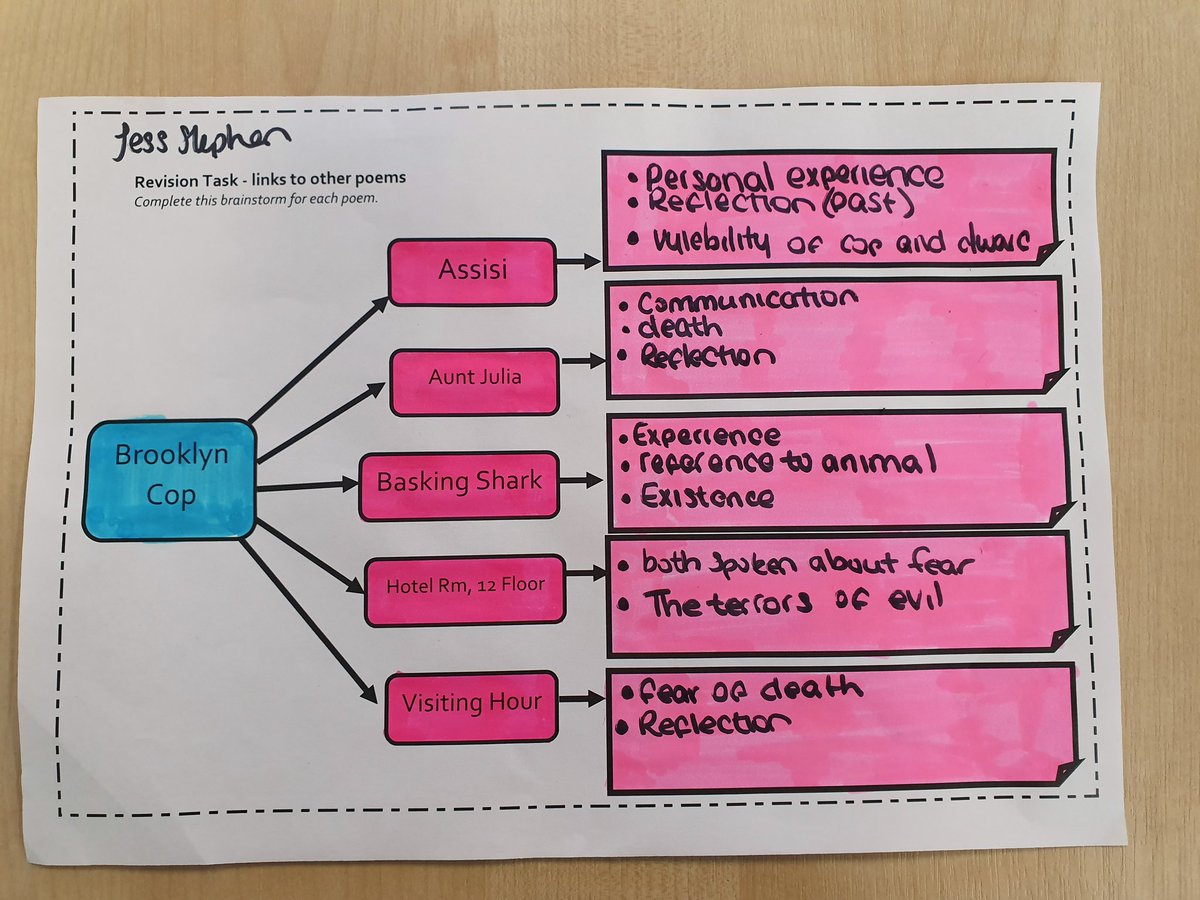 Jess Stephen
Revision Task - links to other poems
Complete this brainstorm for each poem.
Brooklyn
Cop
Assisi
• Personal experience
• Reflection (past)
• Vulebility of cop and dwarf
Aunt Julia
• Communication
• death
• Reflection
Basking Shark
• Experience
• reference to animal
• Existence
Hotel Rm, 12 Floor
• both spoken about fear
• The terrors of evil
Visiting Hour
• fear of death
• Reflection